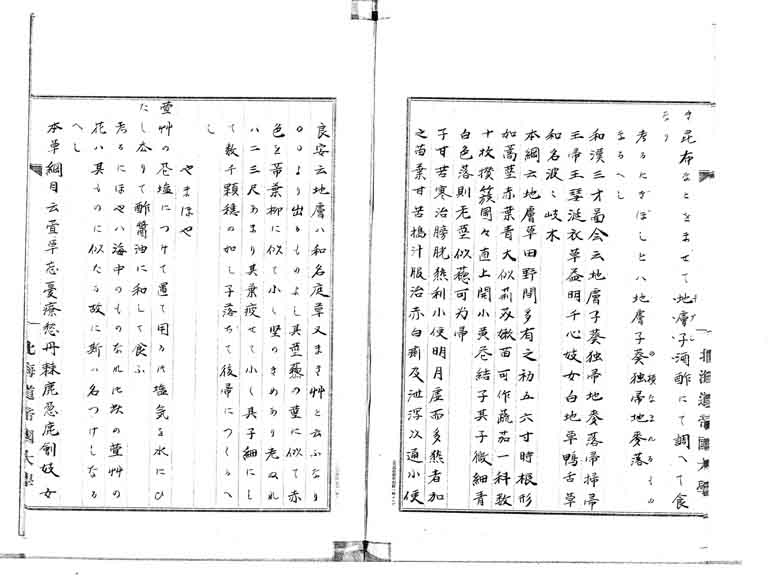 や昆布なとをませて地膚子酒酢にて調へて食
なり
考るにずぼしとハ地膚子葵独帚地麦落
の種なるへし
和漢三才図会云地膚子葵独帚地麦落帚掃帚
王帚王篲涎衣草益明千心妓女白地草鴨舌草
和名波々岐木
本綱云地膚草田野間多有之初五六寸時根形
如蒿茎赤葉青大似荊芥嫩苗可作蔬茹一科数
十枝攅簇團々直上開小黄花結子其子微細青
白色落則老茎似藜可为帚
子甘苦寒治膀胱熱利小便明月虚而多熱者加
之苗葉甘苦搗汁服治赤白痢及泄瀉以通小便
良安云地膚ハ和名庭草又まき艸と云ふなり
〇〇より出るものよし其茎藜の茎に似て赤
色を帯葉柳に似て小し竪のきめあり老ぬれ
ハ二三尺あまり其葉疲せて小く其子細にし
て数千顆穂の如し子落ちて後帚につくるへ
し
やまほや
萱艸の花塩につけて置て用る時塩気を水にひ
たし去りて酢醤油に和して食ふ
考るにほやハ海中のものなれは故の萱艸の
花ハ其ものに似たる故に斯ハ名つけしなる
へし
本草綱目云萱草忘憂療愁丹棘鹿葱鹿剣妓女
北海道帝國大學
北海道帝國大學